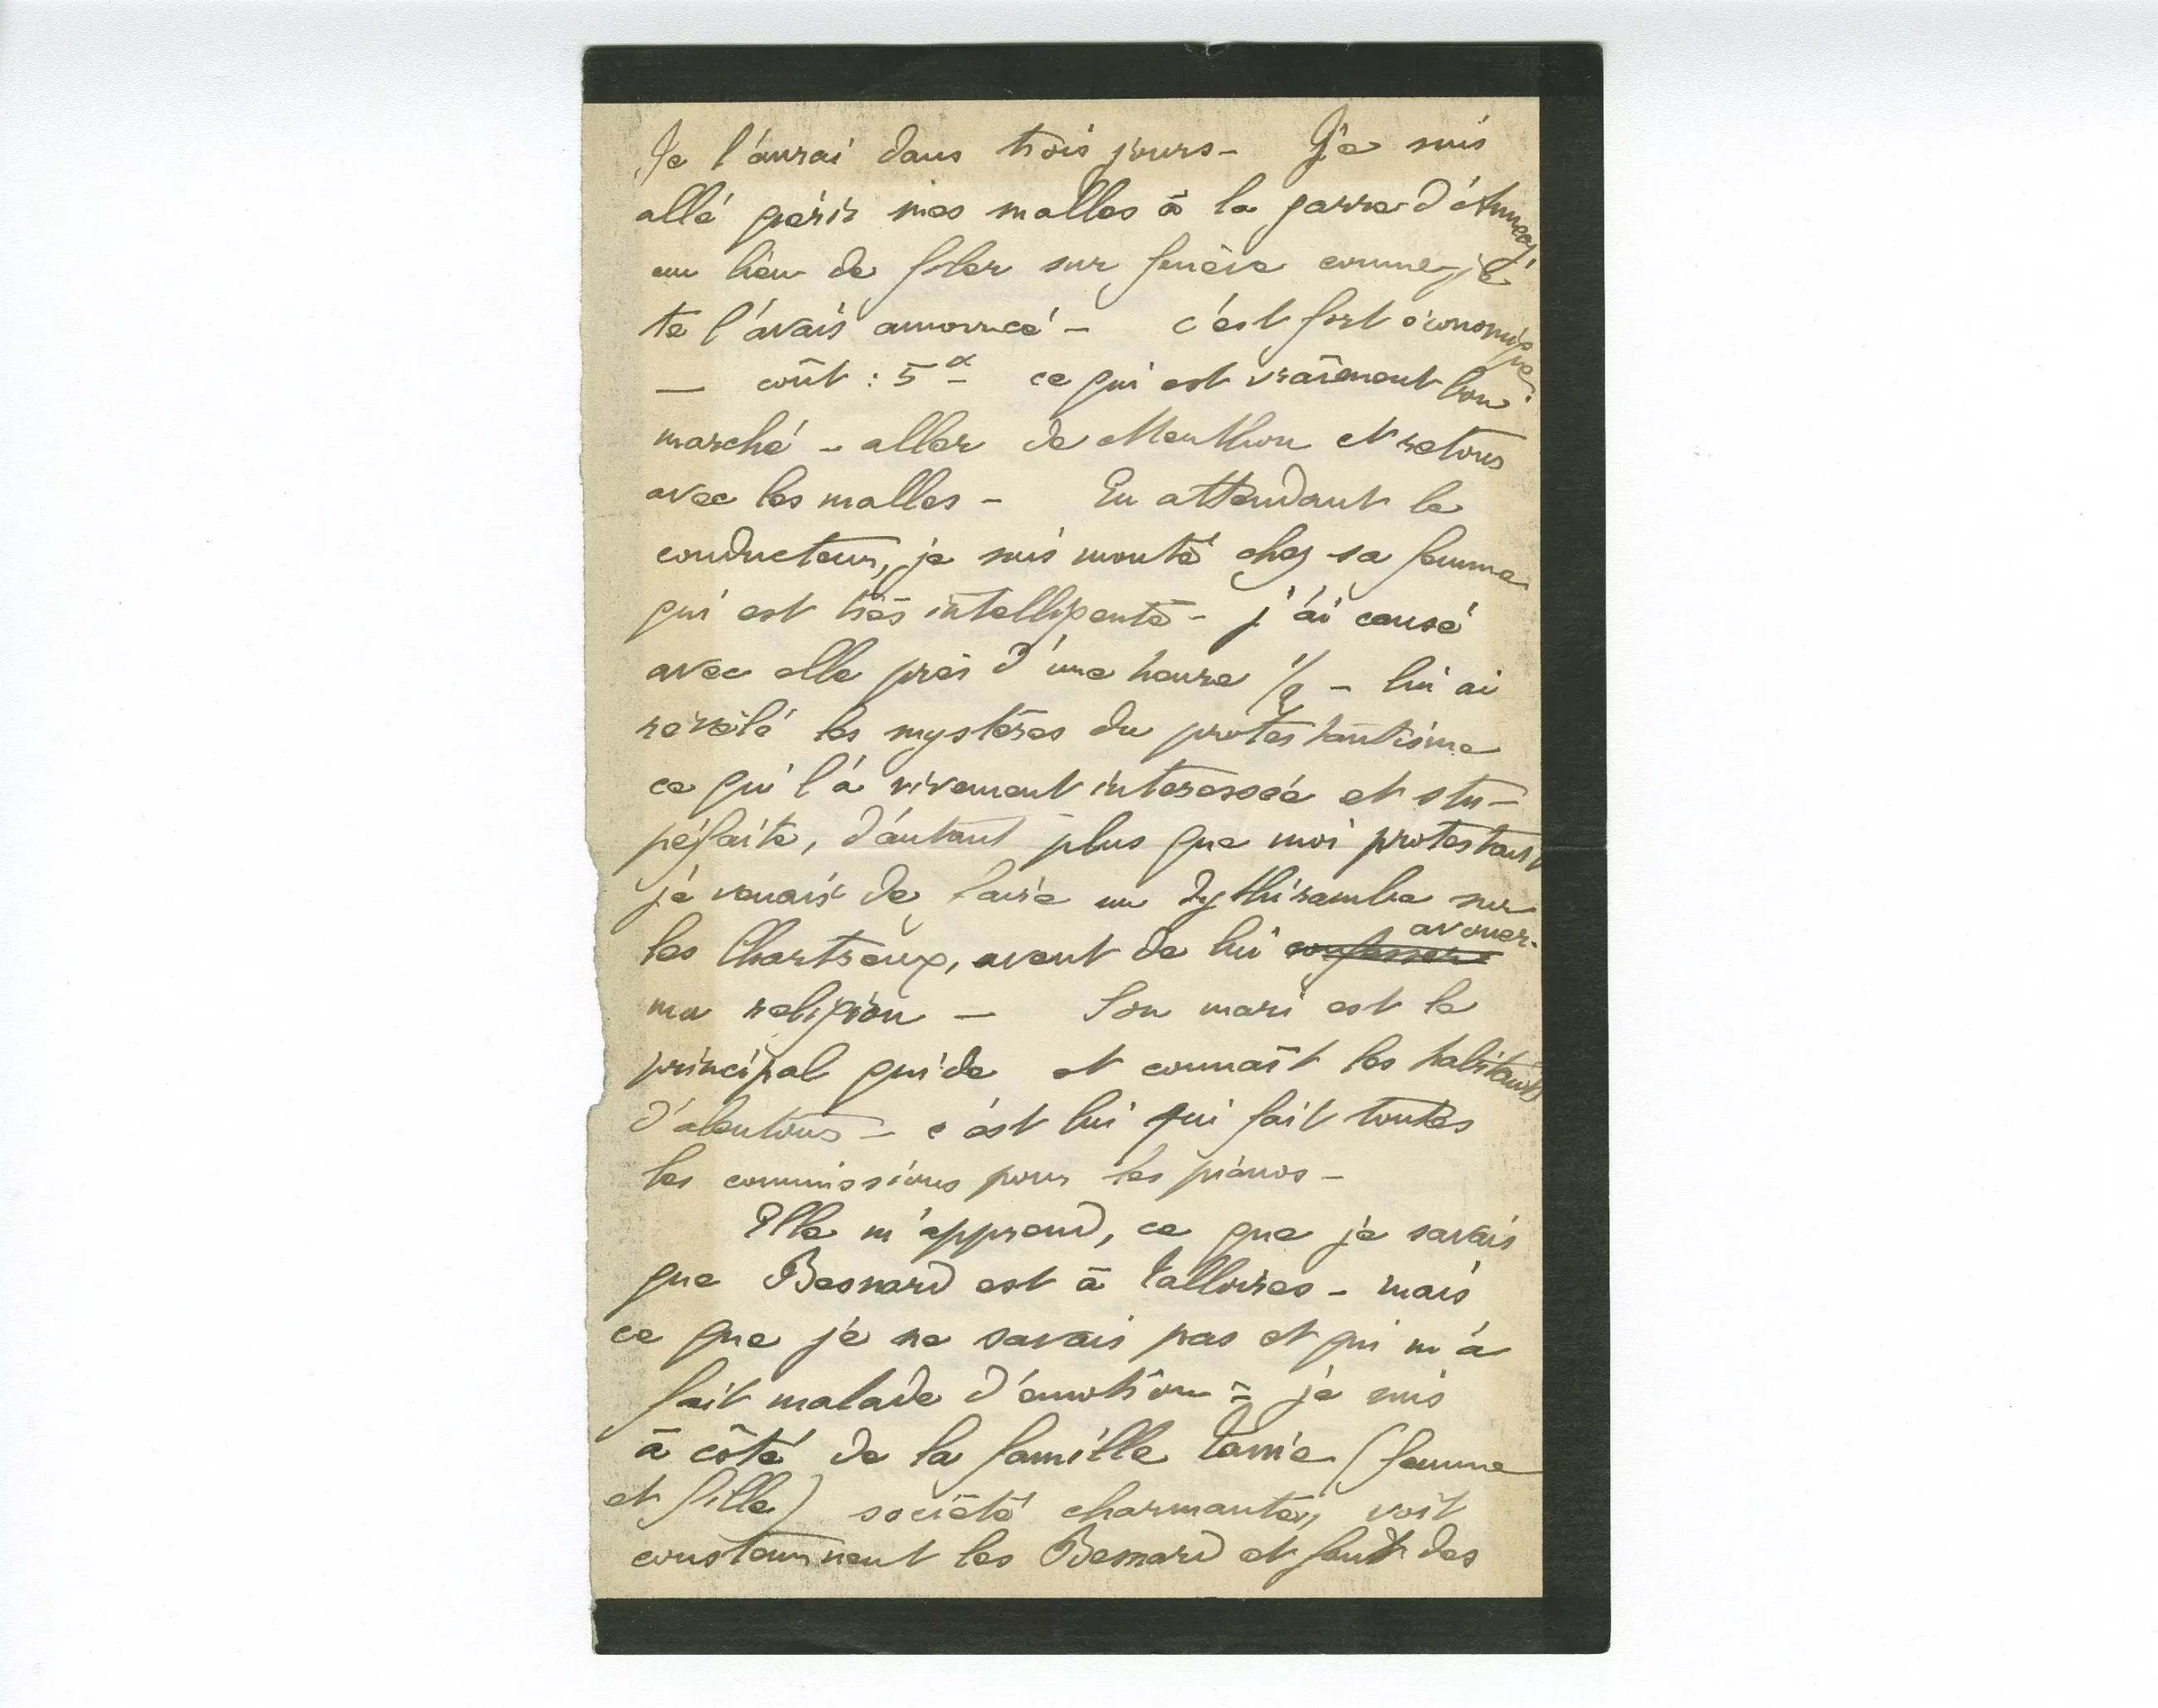 Je l'aurai dans trois jours – Je suis
allé quérir mes malles à la garre d'Annecy
au lieu de filer sur Genève comme je
te l'avais annoncé – c'est fort économique.
— coût : 5 ce qui est vraiment bon
marché – aller de Menthon et retour
avec les malles – En attendant le
conducteur, je suis monté chez sa femme
qui est très intelligente – j'ai causé
avec elle près d'une heure 1/2 – lui ai
révélé les mystères du protestantisme
ce qui l'a vivement interessée et stu–
péfaite, d'autant plus que moi protestant
je venais de faire un dythirambe sur
les Chartreux, avant de lui confesser avouer
ma religion — Son mari est le
principal guide et connaît les habitants
d'alentour – c'est lui qui fait toutes
les commissions pour les pianos –
Elle m'apprend, ce que je savais
que Besnard est à Talloires – mais
ce que je ne savais pas et qui m'a
fait malade d'émotion = je suis
à côté de la famille (femme
et fille) société charmante, voit
constamment les Besnard et font des